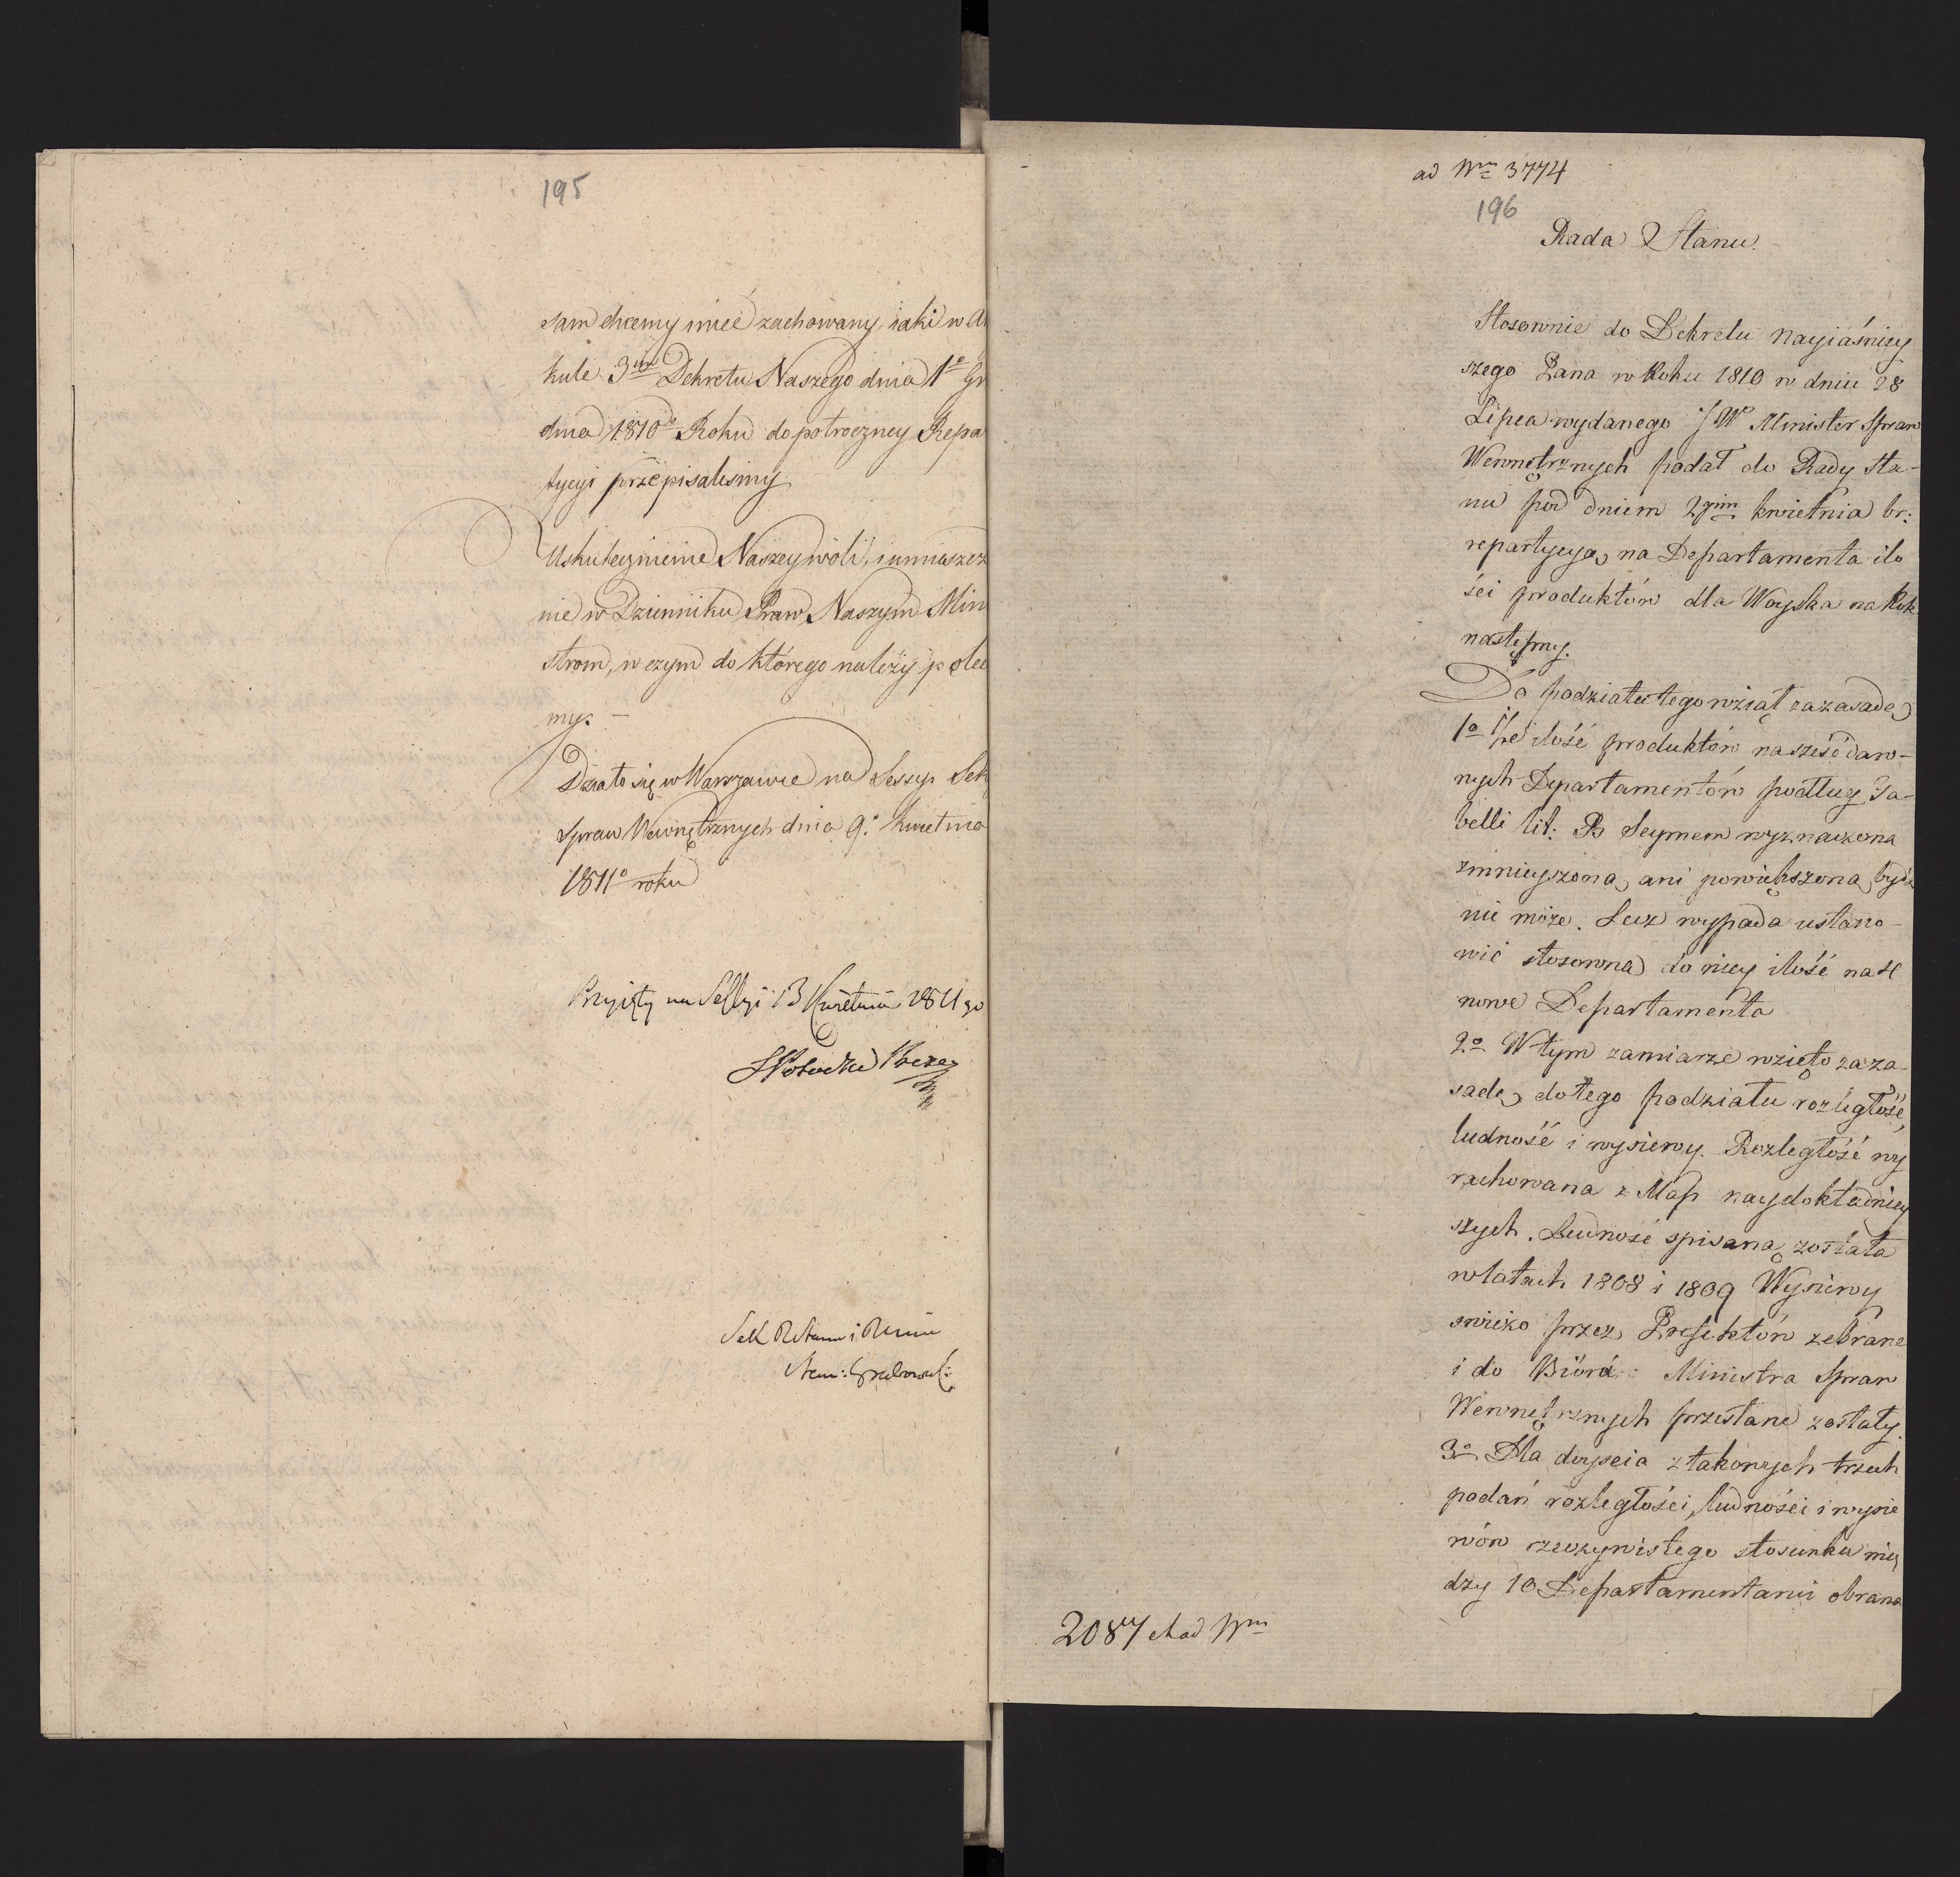 195
sam chcemy mieć zachowany iaki w A
kule 3m Dekretu Naszego dnia 1o Gr
dnia 1810o Roku do potroczney Repa
tycyi przepisalismy
Uskutecznienie Naszey woli, i umieszcz
nie w Dzienniku Praw, Naszym Min
strom, w czym do którego należy pole
my. –
Działo się w Warszawie na Sessyi Sek
Spraw Wewnętrznych dnia 9o Kwietnia
1811o roku
Przyięty na Sessyi 13 Kwietnia 1811 go
Sek R Stanu i
Stan: Grabowski
ad Nrm 3774
196
Rada Stanu.
Stosownie do Dekretu nayiaśniey
szego Pana w Roku 1810 w dniu 28
Lipca wydanego JW Minister Spraw
Wewnętrznych podał do Rady Sta-
nu pod dniem 2gim kwietnia br:
repartycyą na Departamenta ilo
ści produktów dla Woyska na Rok
następny.
Do podziału tego wziął za zasadę
1o że ilość produktów na sześć daw-
nych Departamentów podług Ta-
belli lit: B Seymem wyznaczona
zmnieyszona, ani powiększona bydź
nie może. Lecz wypada ustano-
wić stosowną do niey ilość na 4
nowe Departamenta
2o W tym zamiarze wzięto za za-
sadę do tego podziału rozległość,
ludność i wysiewy. Rozległość wy
rachowana z Map naydokładniey
szych. Ludność spisaną została
w latach 1808 i 1809 Wysiewy
swieżo przez Prefektów zebrane
i do Bióra Ministra Spraw
Wewnętrznych przesłane zostały.
3o Dla doyscia z takowych trzech
podań rozległości, ludności i wysie
wów rzeczywistego stosunku mię
dzy 10 Departamentami obrano
2087 et ad Nrm